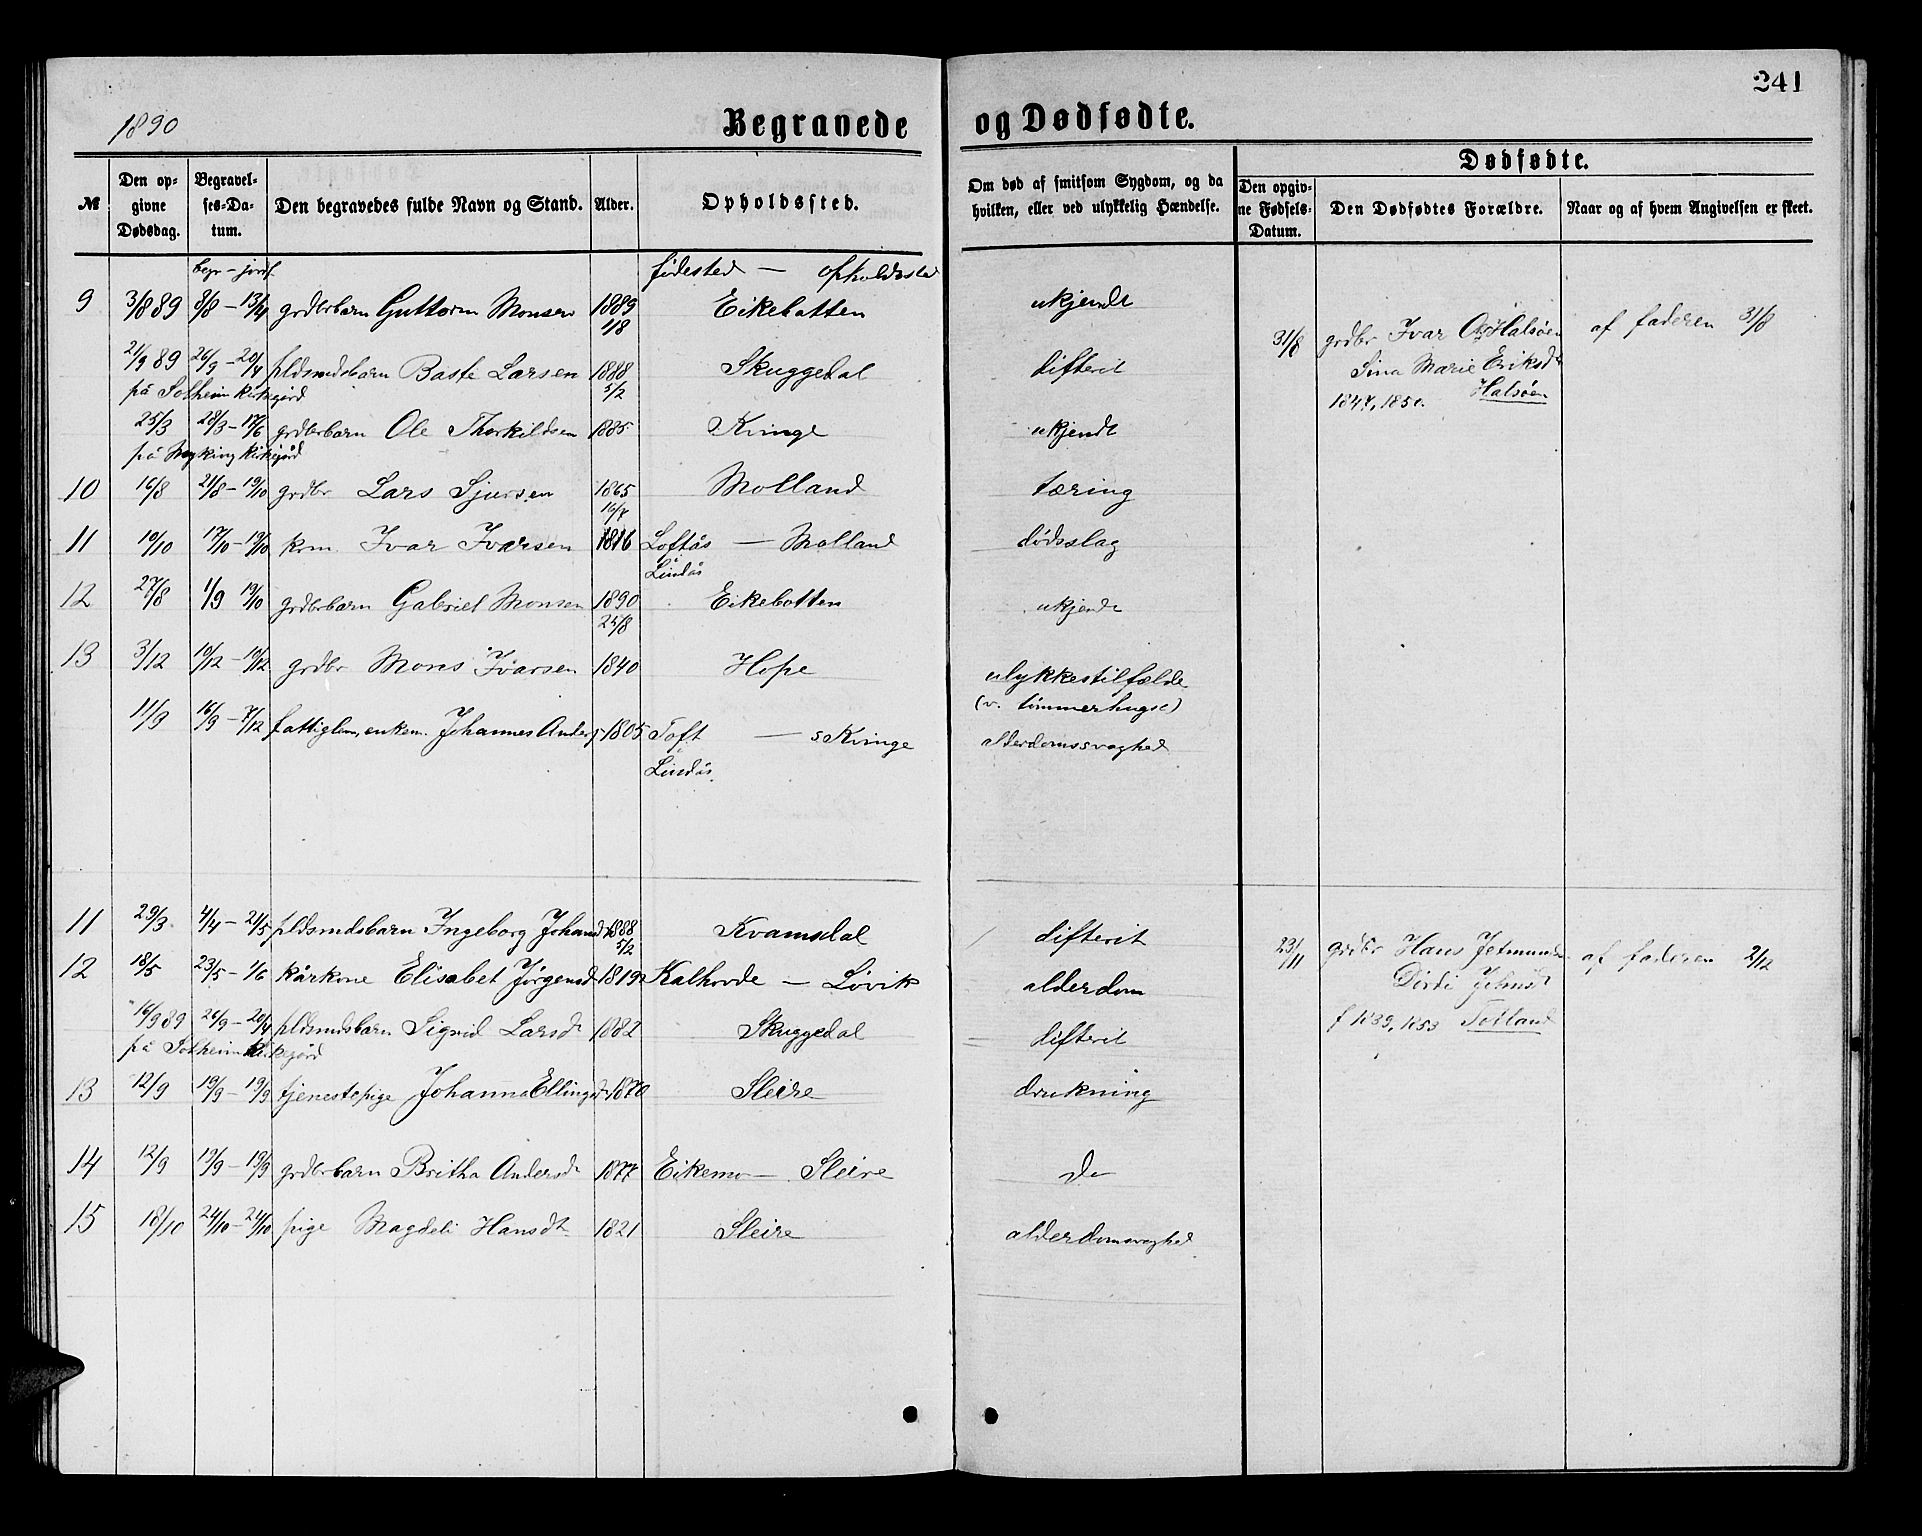 241
1890 Begravede og Dødfødte.
№ Den opgivne Dødsdag. Begravelses-Datum. Den begravedes fulde Navn og Stand. Alder. Opholdssted. Om død af smitsom Sygdom, og da hvilken, eller ved ulykkelig Hændelse. Dødfødte. Den opgivne Fødsels-Datum. Den Dødfødtes Forældre. Naar og af hvem Angivelsen er skeet.
begr - jordf. fødested — opholdssted
9 3/8 89 8/8 - 13/4 grdbrbarn Guttorm Monsen 1889 Eikebotten ukjendt
1/8
31/8 grdbr Ivar O Halsøen af faderen 31/8
21/9 89 26/9 - 20/4 pldsmdsbarn Baste Larsen 1888 Skuggedal difterit
Sina Marie Eriksdr
på Solheim kirkegård 5/2
1847, 1850. Halsøen
25/3 28/3 - 17/6 grdbrbarn Ole Thorkildsen 1885 Kvinge ukjendt
på Myking kirkegård
10 16/8 21/8 - 19/10 grdbr Lars Sjursen 1865 Molland tæring
16/7
11 10/10 17/10 - 19/10 krm. Ivar Ivarsen 1816 Loftås — Molland dødsslag
Lindås
12 27/8 1/9 19/10 grdbrbarn Gabriel Monsen 1890 Eikebotten ukjendt
25/8
13 3/12 10/12 - 10/12 grdbr Mons Ivarsen 1840 Hope ulykkestilfælde
(v. tømmerhugst)
11/9 16/9 - 7/12 fattiglem, enkem. Johannes Anders 1805 Toft — Kvinge alderdomssvaghed
Lindås.
11 29/3 4/4 - 21/5 pldsmdsbarn Ingeborg Johansd 1888 Kvamsdal difterit
5/2
23/11 grdbr Hans Jetmunds af faderen 2/12
12 18/5 23/5 - 1/6 kårkone Elisabet Jørgensd 1819 Kalhovde — Løvik alderdom
Dordi Johnsdr
16/9 89 26/9 - 20/4 pldsmdsbarn Sigrid Larsdr 1882 Skuggedal difterit
f 1839, 1853 Totland
på Solheim Kirkegård
13 12/9 19/9 - 19/9 tjenestepige Johanna Ellingsd 1870 Sleire drukning
14 12/9 19/9 - 19/9 grdbrbarn Britha Andersdr 1877 Eikemo — Sleire do
15 18/10 24/10 - 24/10 pige Magdeli Hansdr 1821 Sleire alderdomsvaghed